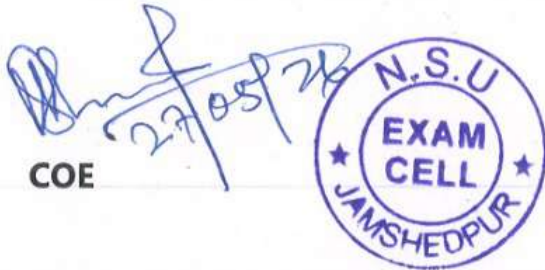 27/05/26
COE
N.S.U
EXAM
CELL
JAMSHEDPUR